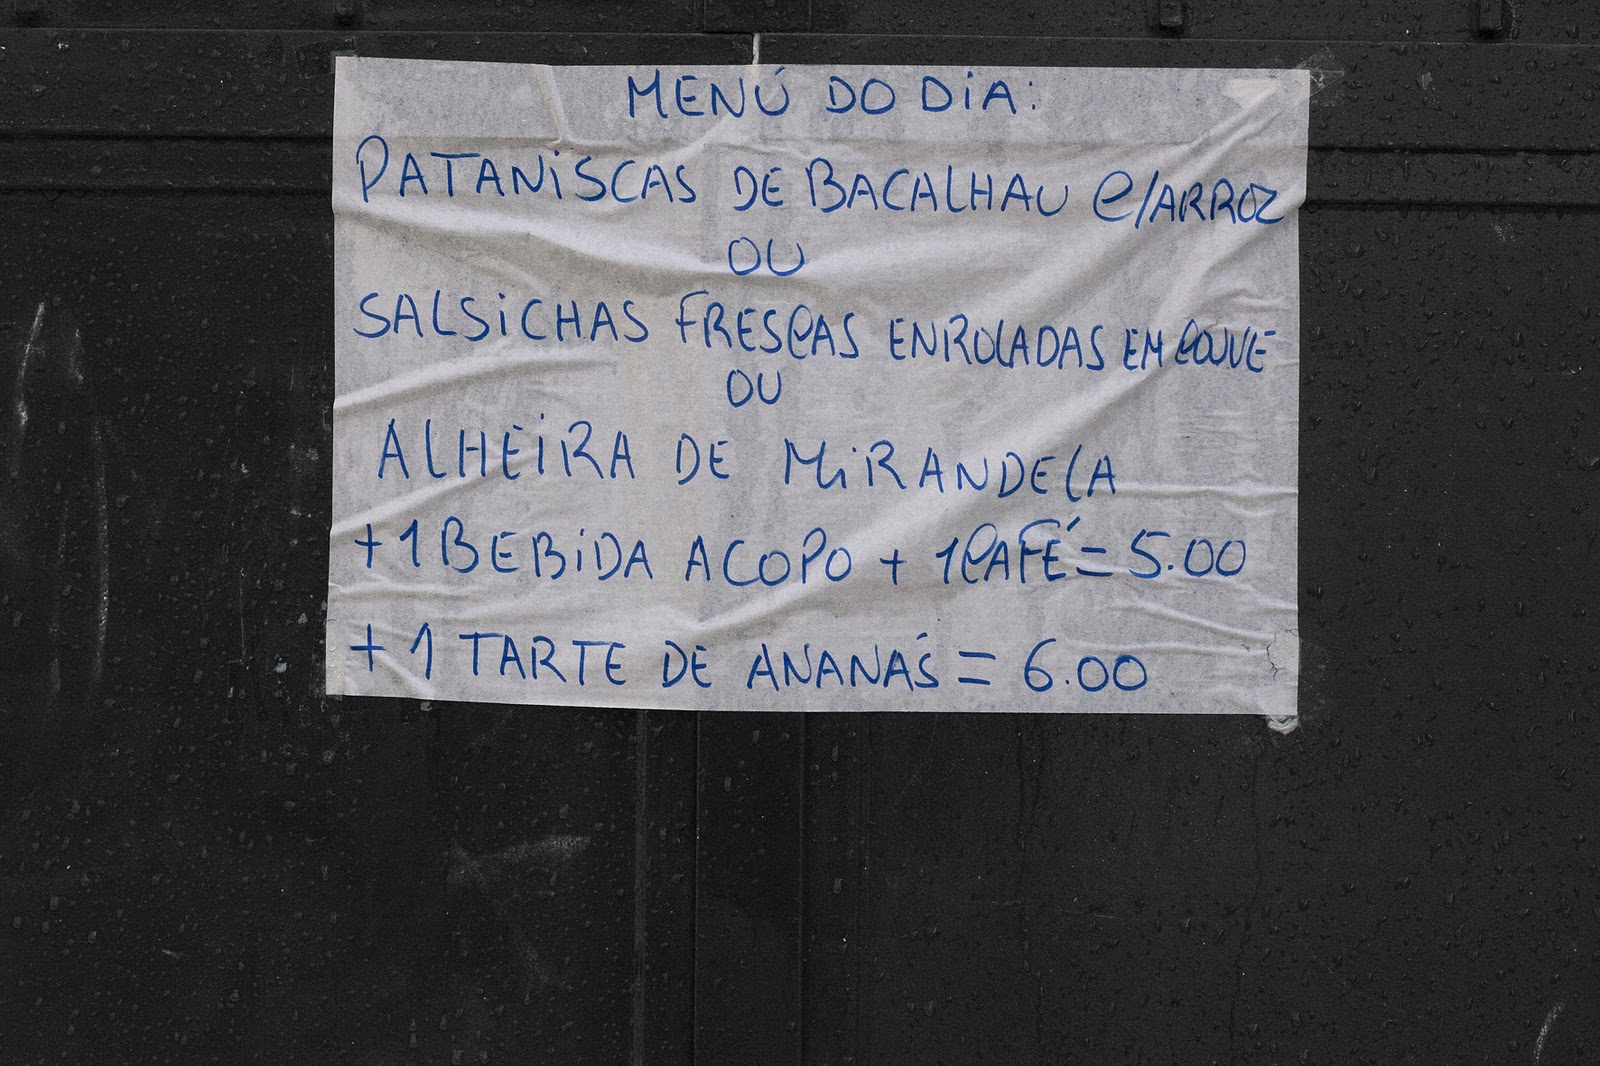 MENÚ DO DIA:
PATANISCAS DE BACALHAU C/ARROZ
OU
SALSICHAS FRESCAS ENROLADAS EM COUVE
OU
ALHEIRA DE MIRANDELA
+1 BEBIDA A COPO + 1 CAFÉ = 5.00
+ 1 TARTE DE ANANÁS = 6.00